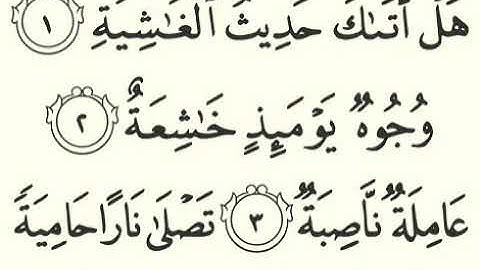 هَلۡ أَتَىٰكَ حَدِيثُ ٱلۡغَٰشِيَةِ ١
وُجُوهٞ يَوۡمَئِذٍ خَٰشِعَةٌ ٢
عَامِلَةٞ نَّاصِبَةٞ ٣ تَصۡلَىٰ نَارًا حَامِيَةٗ